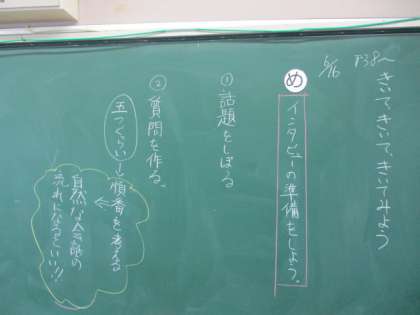 きいて、きいて、きいてみよう
P38〜
5/16
め
インタビューの準備をしよう。
① 話題をしぼる
② 質問を作る。
五つくらい→順番を考える
自然な会話の
流れになるといい!!